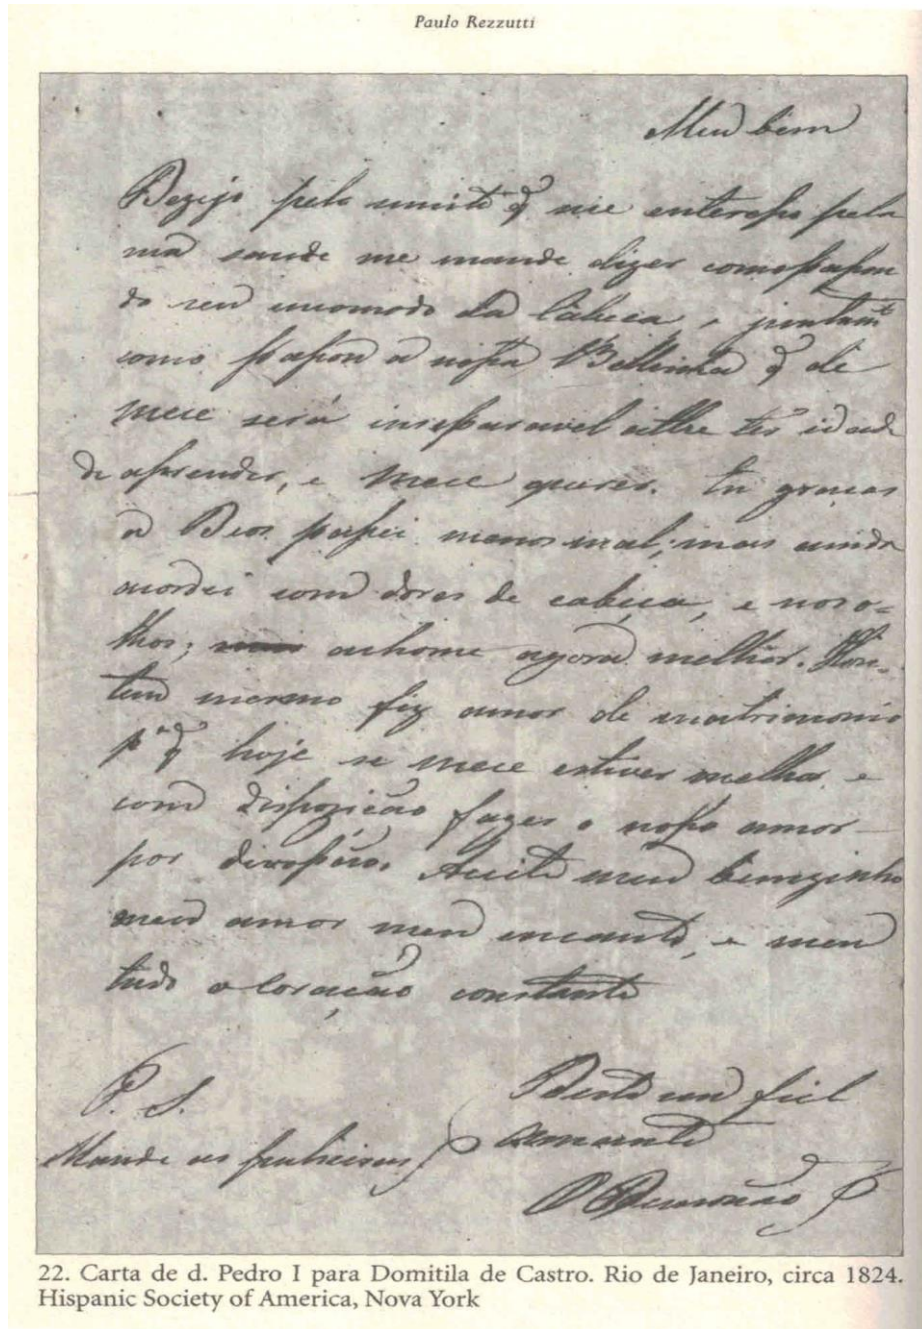 Paulo Rezzutti
Meu bem
Dezejo pela muito q̃ me interesso pela
sua saude me mande dizer como passou
do seu incomodo da Cabeça, juntamte
como passou a nossa Bellinha q̃ de
mece será inseparavel athe ter idade
de aprender, e mece querer. Eu graças
a Deos passei menos mal; mas ainda
acordei com dores de cabeça, e nos o=
lhos; achome agora melhor. Hon=
tem mesmo fiz amor de matrimonio
pa q̃ hoje se mece estiver melhor, e
com dispozição fazer o nosso amor
por devoção. Aceite meu bemzinho
meu amor meu encanto, e meu
tudo o Coração constante
P. S.
Deste seu fiel
Mande as
amante
O Demonão
22. Carta de d. Pedro I para Domitila de Castro. Rio de Janeiro, circa 1824.
Hispanic Society of America, Nova York